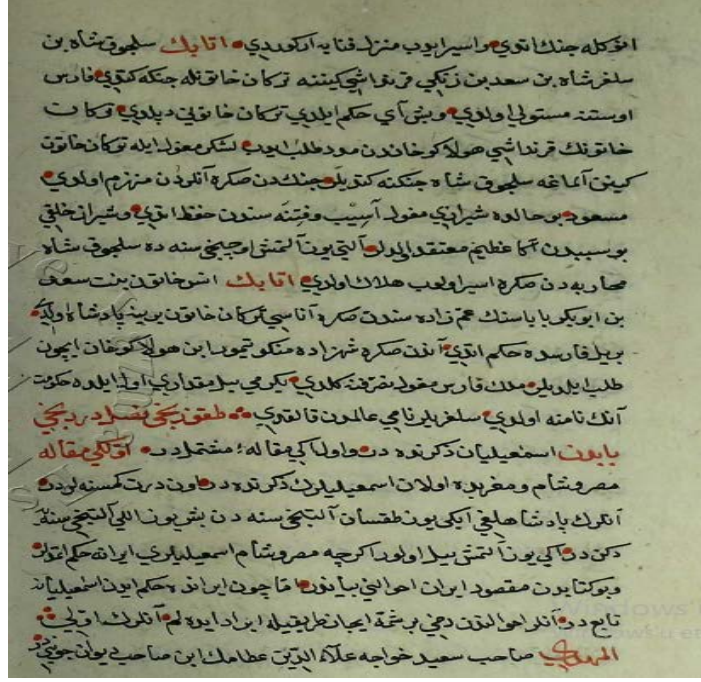 انوكله جنك اتدي و اسير ايدوب منزل فنايه اركوردي اتابك سلجوق شاه بن
سلغر شاه بن سعد بن زنكي قرنداشي كيننه تركان خاتونله جنكه كتدي فارس
اوستنه مستولي اولدي و بش آي حكم ايلدي تركان خاتوني ديلدي تركان
خاتونك قرنداشي هولاكو خاندن مدد طلب ايدوب لشكر مغول ايله تركان خاتون
كينن آلماغه سلجوق شاه جنكنه كتديلر جنكدن صكره آنلردن منهزم اولدي
مسعود بو حالده شيرازي مغول آسيب و فتنه سندن حفظ اتدي و شيراز خلقي
بو سببدن آكا عظيم معتقد اولدلر آلتي يوز آلتمش اوچنجي سنه ده سلجوق شاه
محاربه دن صكره اسير اولوب هلاك اولدي اتابك انش خاتون بنت سعد
بن ابوبكر باباسنك عم زاده سندن صكره آناسي تركان خاتون يرينه پادشاه اولدي
بر ييل فارسده حكم اتدي آندن صكره شهزاده منكو تيمور ابن هولاكو خان ايچون
طلب ايلديلر ملك فارس مغول تصرفنه كلدي يكرمي ييل مقداري اول ايلده حكومت
آنك نامنه اولدي سلغريلر نامي عالمدن قالقدي طقوزنجي فصل دردنجي
بابدن اسمعيليان ذكرنده در و اول ايكي مقاله يه مشتملدر اولكي مقاله
مصر و شام و مغربده اولان اسمعيليلرك ذكرنده در اون درت كمسنه لردر
آنلرك پادشاهلغي ايكي يوز طقسان آلتنجي سنه دن بش يوز اللي آلتنجي سنه يه
دكندر ايكي يوز آلتمش ييل اولور اكرچه مصر و شام اسمعيليلري ايرانه حكم اتمديلر
و بو كتابدن مقصود ايران احوالني بياندر اما چون ايرانده حكم ايدن اسمعيليان
تابعدر آنلر احوالندن دخي بر شمه ايجاز طريقيله ايراد ايده لم آنلرك اولي
المهدي صاحب سعيد خواجه علاء الدين عطا ملك ابن صاحب ديوان جويني در